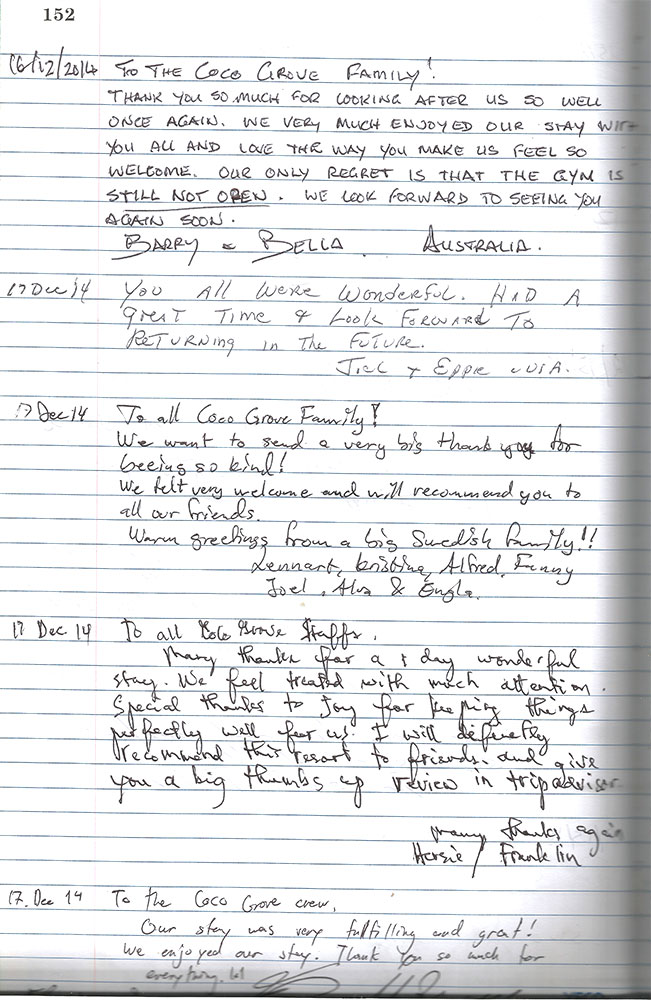 152
16/12/2014 TO THE COCO GROVE FAMILY!
THANK YOU SO MUCH FOR LOOKING AFTER US SO WELL
ONCE AGAIN. WE VERY MUCH ENJOYED OUR STAY WITH
YOU ALL AND LOVE THE WAY YOU MAKE US FEEL SO
WELCOME. OUR ONLY REGRET IS THAT THE GYM IS
STILL NOT OPEN. WE LOOK FORWARD TO SEEING YOU
AGAIN SOON.
BARRY & BELLA. AUSTRALIA.
17 Dec '14 You All Were Wonderful. HAD A
Great Time & Look Forward To
Returning in The Future.
+ Eppie USA.
17 Dec 14 To all Coco Grove Family!
We want to send a very big thank you for
beeing so kind!
We felt very welcome and will recommend you to
all our friends.
Warm greetings from a big Swedish family!!
Lennart, Kristina, Alfred, Fanny
Joel, Alva & Engla.
17 Dec 14 To all Coco Grove Staffs,
Many thanks for a 5 day wonderful
stay. We feel treated with much attention.
Special thanks to Joy for keeping things
perfectly well for us. I will definetly
recommend this resort to friends. and give
you a big thumbs up review in tripadvisor
many thanks again
Hersie / Franklin
17. Dec 14 To the Coco Grove crew,
Our stay was very fulfilling and great!
We enjoyed our stay. Thank You so much for
everything. lol